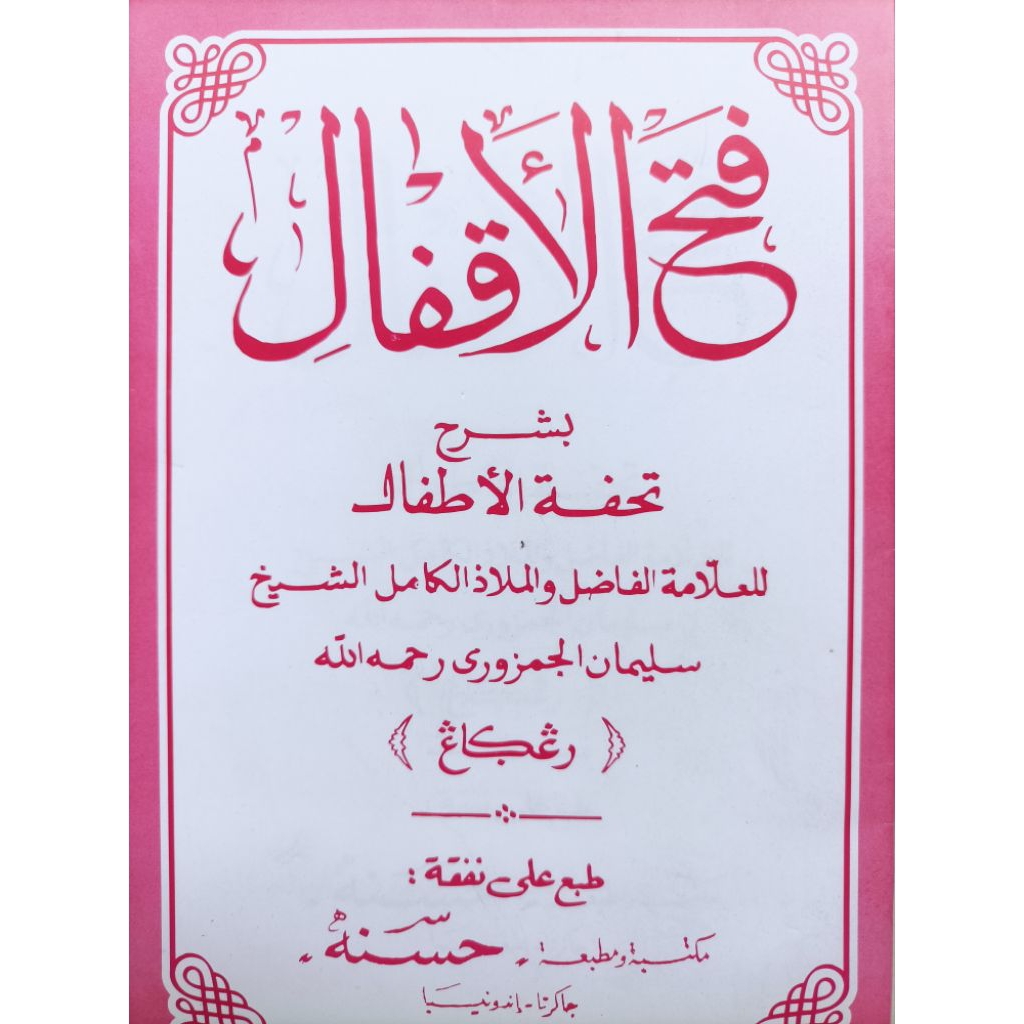 فتح الأقفال
بشرح
تحفة الأطفال
للعلّامة الفاضل والملاذ الكامل الشيخ
سليمان الجمزورى رحمه الله
﴿ رڠكاڠ ﴾
طبع على نفقة :
مكتبة ومطبعة - حسنه -
جاكرتا - إندونيسيا